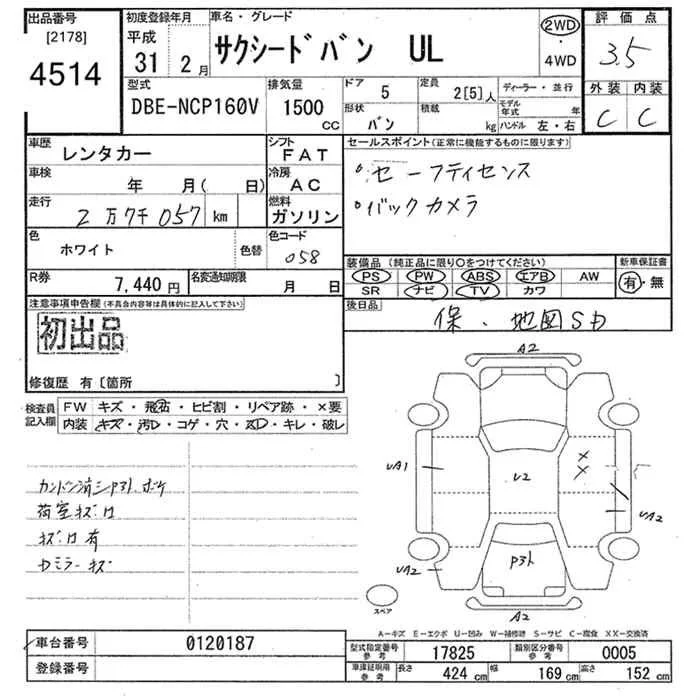 出品番号 初度登録年月 車名・グレード 2WD・4WD 評価点
[2178] 平成
4514 31 2月 サクシードバン UL 3.5
型式 排気量 ドア 5 定員 2[5]人 ディーラー・並行 外装 内装
DBE-NCP160V 1500cc 形状 バン 積載 kg モデル年式 年 ハンドル 左・右 C C
車歴 レンタカー シフト FAT セールスポイント(正常に機能するものに限ります)
車検 年 月(日) 冷房 AC 。セーフティセンス
走行 2万7千057 km 燃料 ガソリン 。バックカメラ
色 ホワイト 色替 色コード 058
装備品(純正品に限り○をつけてください) 新車保証書
PS PW ABS エアB AW 有・無
SR ナビ TV カワ
R券 7,440円 名変通知期限 月 日
後日品 保、地図SD
注意事項申告欄(不具合内容等は具体的に記入して下さい)
初出品
修復歴 有〔箇所 〕
検査員記入欄 FW キズ・飛石・ヒビ割・リペア跡・×要
内装 キズ・汚レ・コゲ・穴・凹・キレ・破レ
荷室キズ凹
キズ凹有
Dミラーキズ
A2
UA1
U2
UA2
UA2
A2
スペア
A-キズ E-エクボ U-凹み W-補修跡 S-サビ C-腐食 XX-交換済
車台番号 0120187
登録番号
型式指定番号 参考 17825 類別区分番号 参考 0005
車庫証明用 参考 長さ 424cm 幅 169cm 高さ 152cm